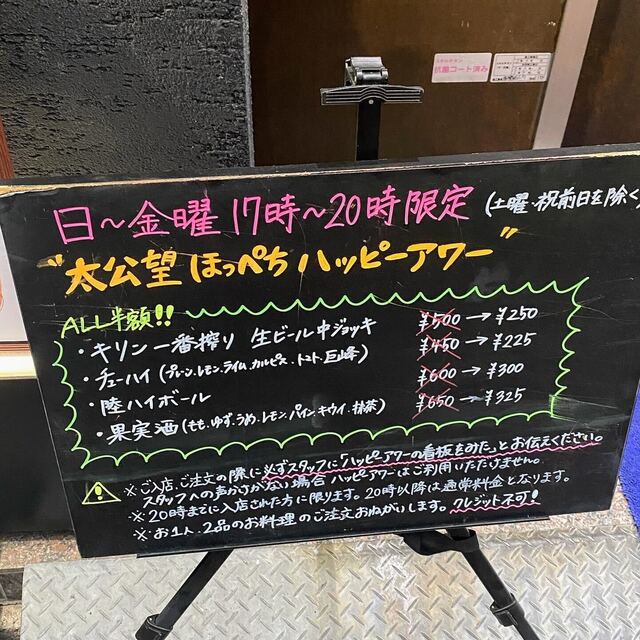 抗菌コート済み
日～金曜 17時～20時限定 (土曜・祝前日を除く)
"太公望 ほっぺち ハッピーアワー"
ALL半額!!
・キリン一番搾り 生ビール中ジョッキ ¥500→¥250
・チューハイ(プレーン、レモン、ライム、カルピス、トマト、巨峰) ¥450→¥225
・陸ハイボール ¥600→¥300
・果実酒(もも、ゆず、うめ、レモン、パイン、キウイ、抹茶) ¥650→¥325
※ご入店、ご注文の際に必ずスタッフに「ハッピーアワーの看板をみた」とお伝えください。
スタッフへの声かけがない場合ハッピーアワーはご利用いただけません。
※20時までに入店された方に限ります。20時以降は通常料金となります。
※お1人、2品のお料理のご注文おねがいします。クレジット不可!